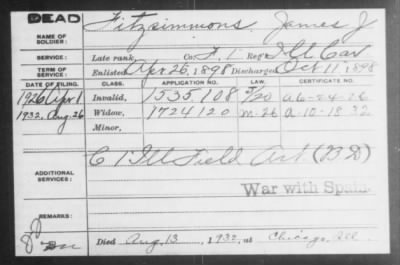 DEAD
NAME OF SOLDIER: Fitzsimmons, James J
SERVICE: Late rank, Co. F, 1 Reg't Ill Cav
TERM OF SERVICE: Enlisted Apr 26, 1898 Discharged Oct 11, 1898
DATE OF FILING. CLASS. APPLICATION NOS. LAW. CERTIFICATE NO.
1926 Apr 1 Invalid, 1535,108 5/20 a 6-24-26
1932, Aug 26 Widow, 1724120 m-26 a-10-18-32
Minor,
ADDITIONAL SERVICES: C 1 Ill Field Art
War with Spain
REMARKS:
Died Aug. 13, 1932, at Chicago, Ill.